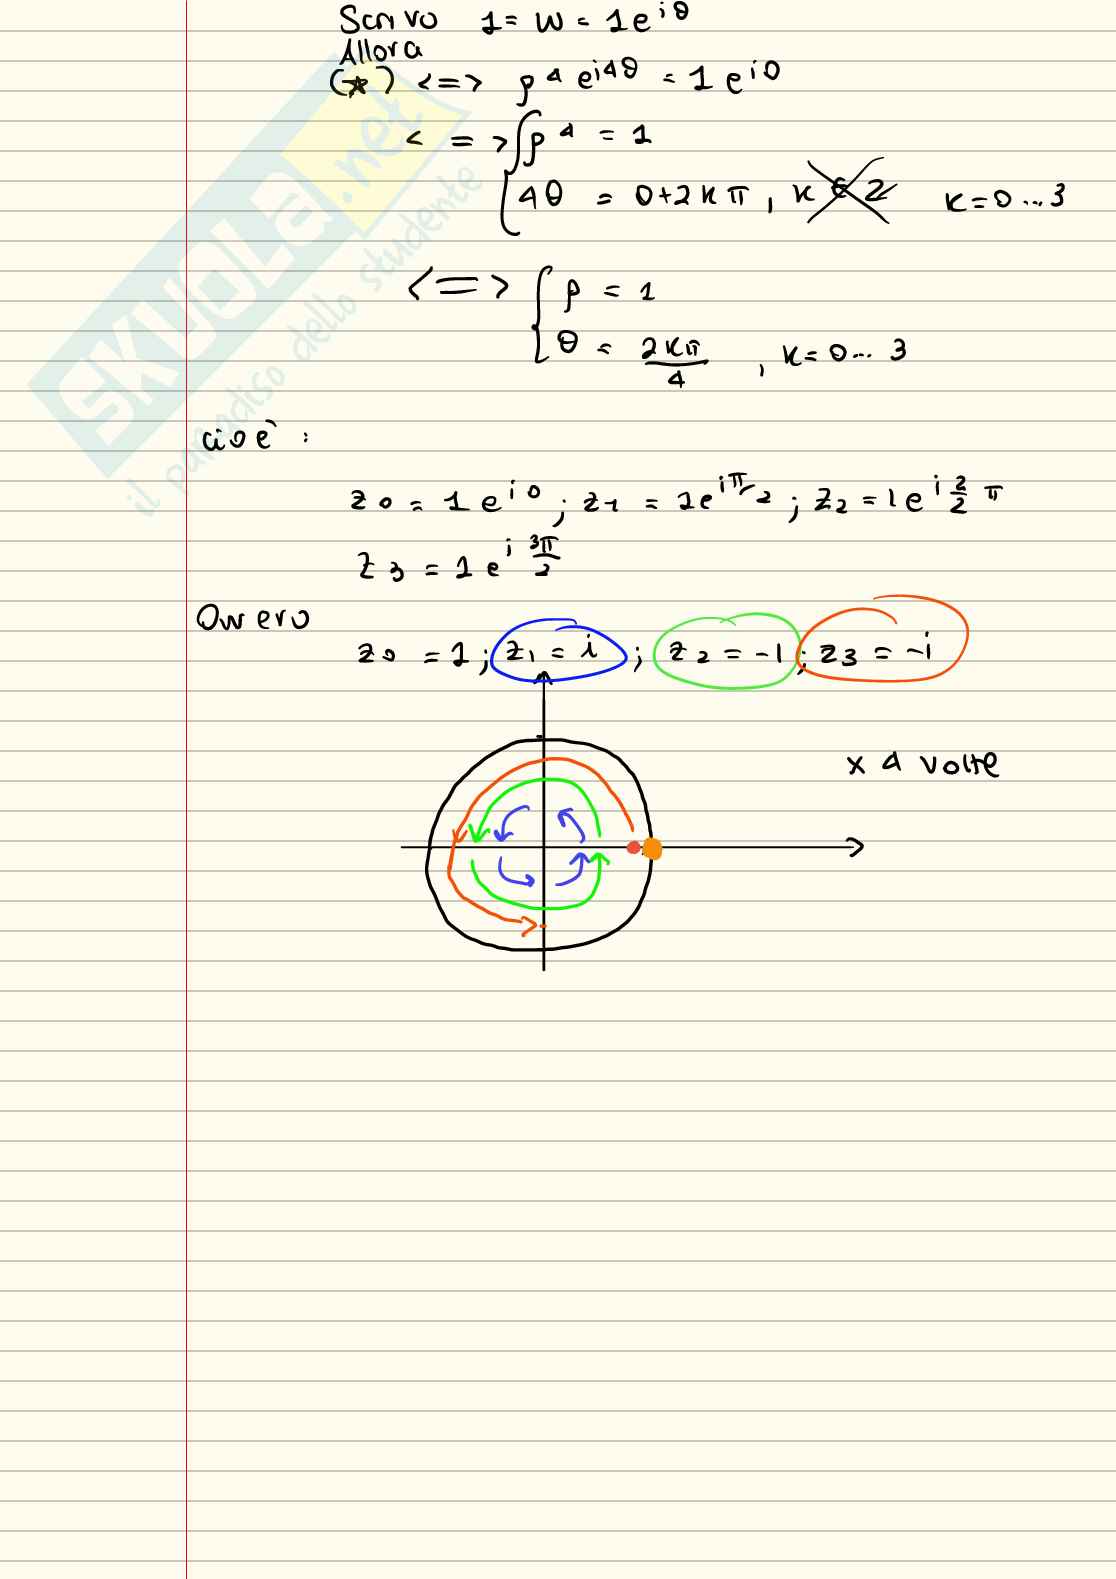 Scrivo 1 = w = 1e^{iθ}
Allora
(*) <=> ρ^4 e^{i4θ} = 1 e^{i0}
<=> { ρ^4 = 1
4θ = 0+2kπ, k ∈ Z k=0...3
<=> { ρ = 1
θ = 2kπ/4, k=0...3
cioè :
z0 = 1 e^{i0}; z1 = 1e^{iπ/2}; z2 = 1e^{i 2/2 π}
z3 = 1 e^{i 3π/2}
Ovvero
z0 = 1; z1 = i; z2 = -1; z3 = -i
x 4 volte
SKUOLA.net
il paradiso dello studente